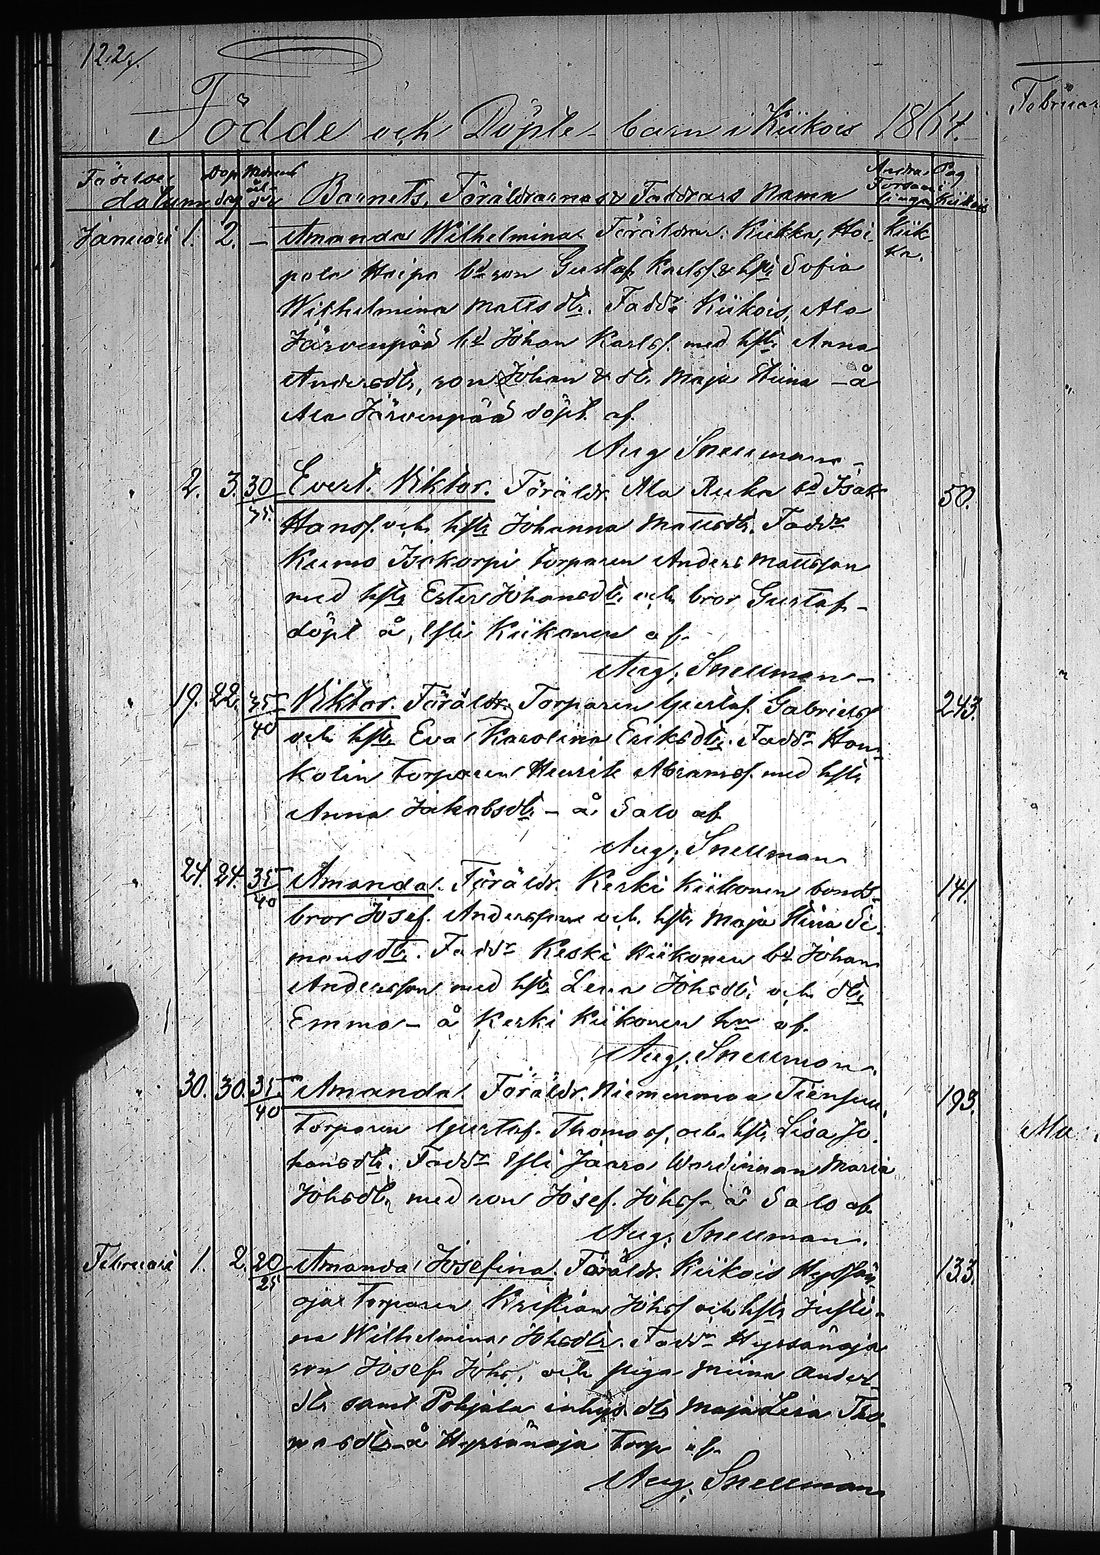 122.
Födde och Döpte barn i Kiikois 1864.
Februari
Födelse datum Dop dag Modrens ålder Barnets, Föräldrarnas & Faddrars Namn Andra Försam lingar Pag Kiikois
Januari 1. 2. – Amanda Wilhelmina. Föräldrar: Kiikka, Hei- Kiik
pola Heipa bd son Gustaf Karlss. & hstr Sofia ka.
Wilhelmina Mattsdtr. Faddr Kiikois, Ala
Järvenpää bd Johan Karlss. med hstr Anna
Andersdtr, son Johan & dtr Maja Stina – å
Ala Järvenpää döpt af
Aug Snellman –
" 2. 3. 30/35. Evert Viktor. Föräldr. Ala Ruha bd Isak 50.
Hanss. och hstr Johanna Mattsdtr. Faddr
Kumo Isokorpi torparen Anders Mattsson
med hstr Ester Johansdtr och bror Gustaf –
döpt å, Yli Kiikonen af
Aug. Snellman –
" 19. 22. 35/40 Viktor. Föräldr. Torparen Gustaf Gabrielss. 243.
och hstr Eva Karolina Eriksdtr. Faddr Hon-
kolin torparen Henrik Abramss. med hstr
Anna Jakobsdtr – å Salo af
Aug. Snellman
" 24. 24. 35/40 Amanda. Föräldr. Keski Kiikonen bonds- 141.
bror Josef Andersson och hstr Maja Stina Si-
monsdtr. Faddr Keski Kiikonen bd Johan
Andersson med hstr Lena Johsdtr och dtr
Emma – å Keski Kiikonen hn af
Aug. Snellman.
" 30. 30. 35/40 Amanda. Föräldr. Niemenmaa Tiensuu 193.
Torparen Gustaf Thomass. och hstr Lisa Jo-
hansdtr. Faddr Yli Jaara Maria
Johsdtr med son Josef Johss. å Salo af
Aug. Snellman.
Februari 1. 2. 20/25 Amanda Josefina. Föräldr. Kiikois Hyssän- 133.
oja Torparen Kristian Johss. och hstr Justi-
na Wilhelmina Johsdtr. Faddr Hyssänoja
son Josef Johs. och piga Miina Anders
dtr samt Pohjala inhys dtr Maja Lisa Tho-
masdtr – å Hyssänoja torp af
Aug. Snellman